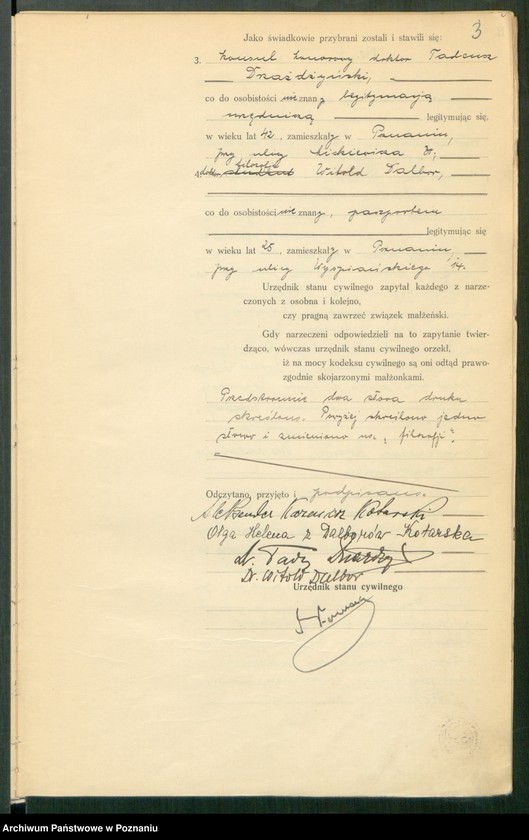 3
Jako świadkowie przybrani zostali i stawili się:
3. konsul honorowy doktor Tadeusz
Drażdżyński,
co do osobistości nie znany legitymacją
urzędniczą legitymując się,
w wieku lat 42, zamieszkały w Poznaniu,
przy ulicy Mickiewicza
filozofji
4. doktor Witold Dalbor,
co do osobistości nie znany, paszportem
legitymując się
w wieku lat 28, zamieszkały w Poznaniu,
przy ulicy Wyspiańskiego 14.
Urzędnik stanu cywilnego zapytał każdego z narze-
czonych z osobna i kolejno,
czy pragną zawrzeć związek małżeński.
Gdy narzeczeni odpowiedzieli na to zapytanie twier-
dząco, wówczas urzędnik stanu cywilnego orzekł,
iż na mocy kodeksu cywilnego są oni odtąd prawo-
zgodnie skojarzonymi małżonkami.
Przedstronnie dwa słowa druku
skreślono. Powyżej skreślono jedno
słowo i zmieniono na: „filozofji”.
Odczytano, przyjęto i podpisano.
Aleksander Kazimierz Kotarski
Olga Helena z Dalborów Kotarska
Dr. Tad.
Dr. Witold Dalbor
Urzędnik stanu cywilnego
Archiwum Państwowe w Poznaniu